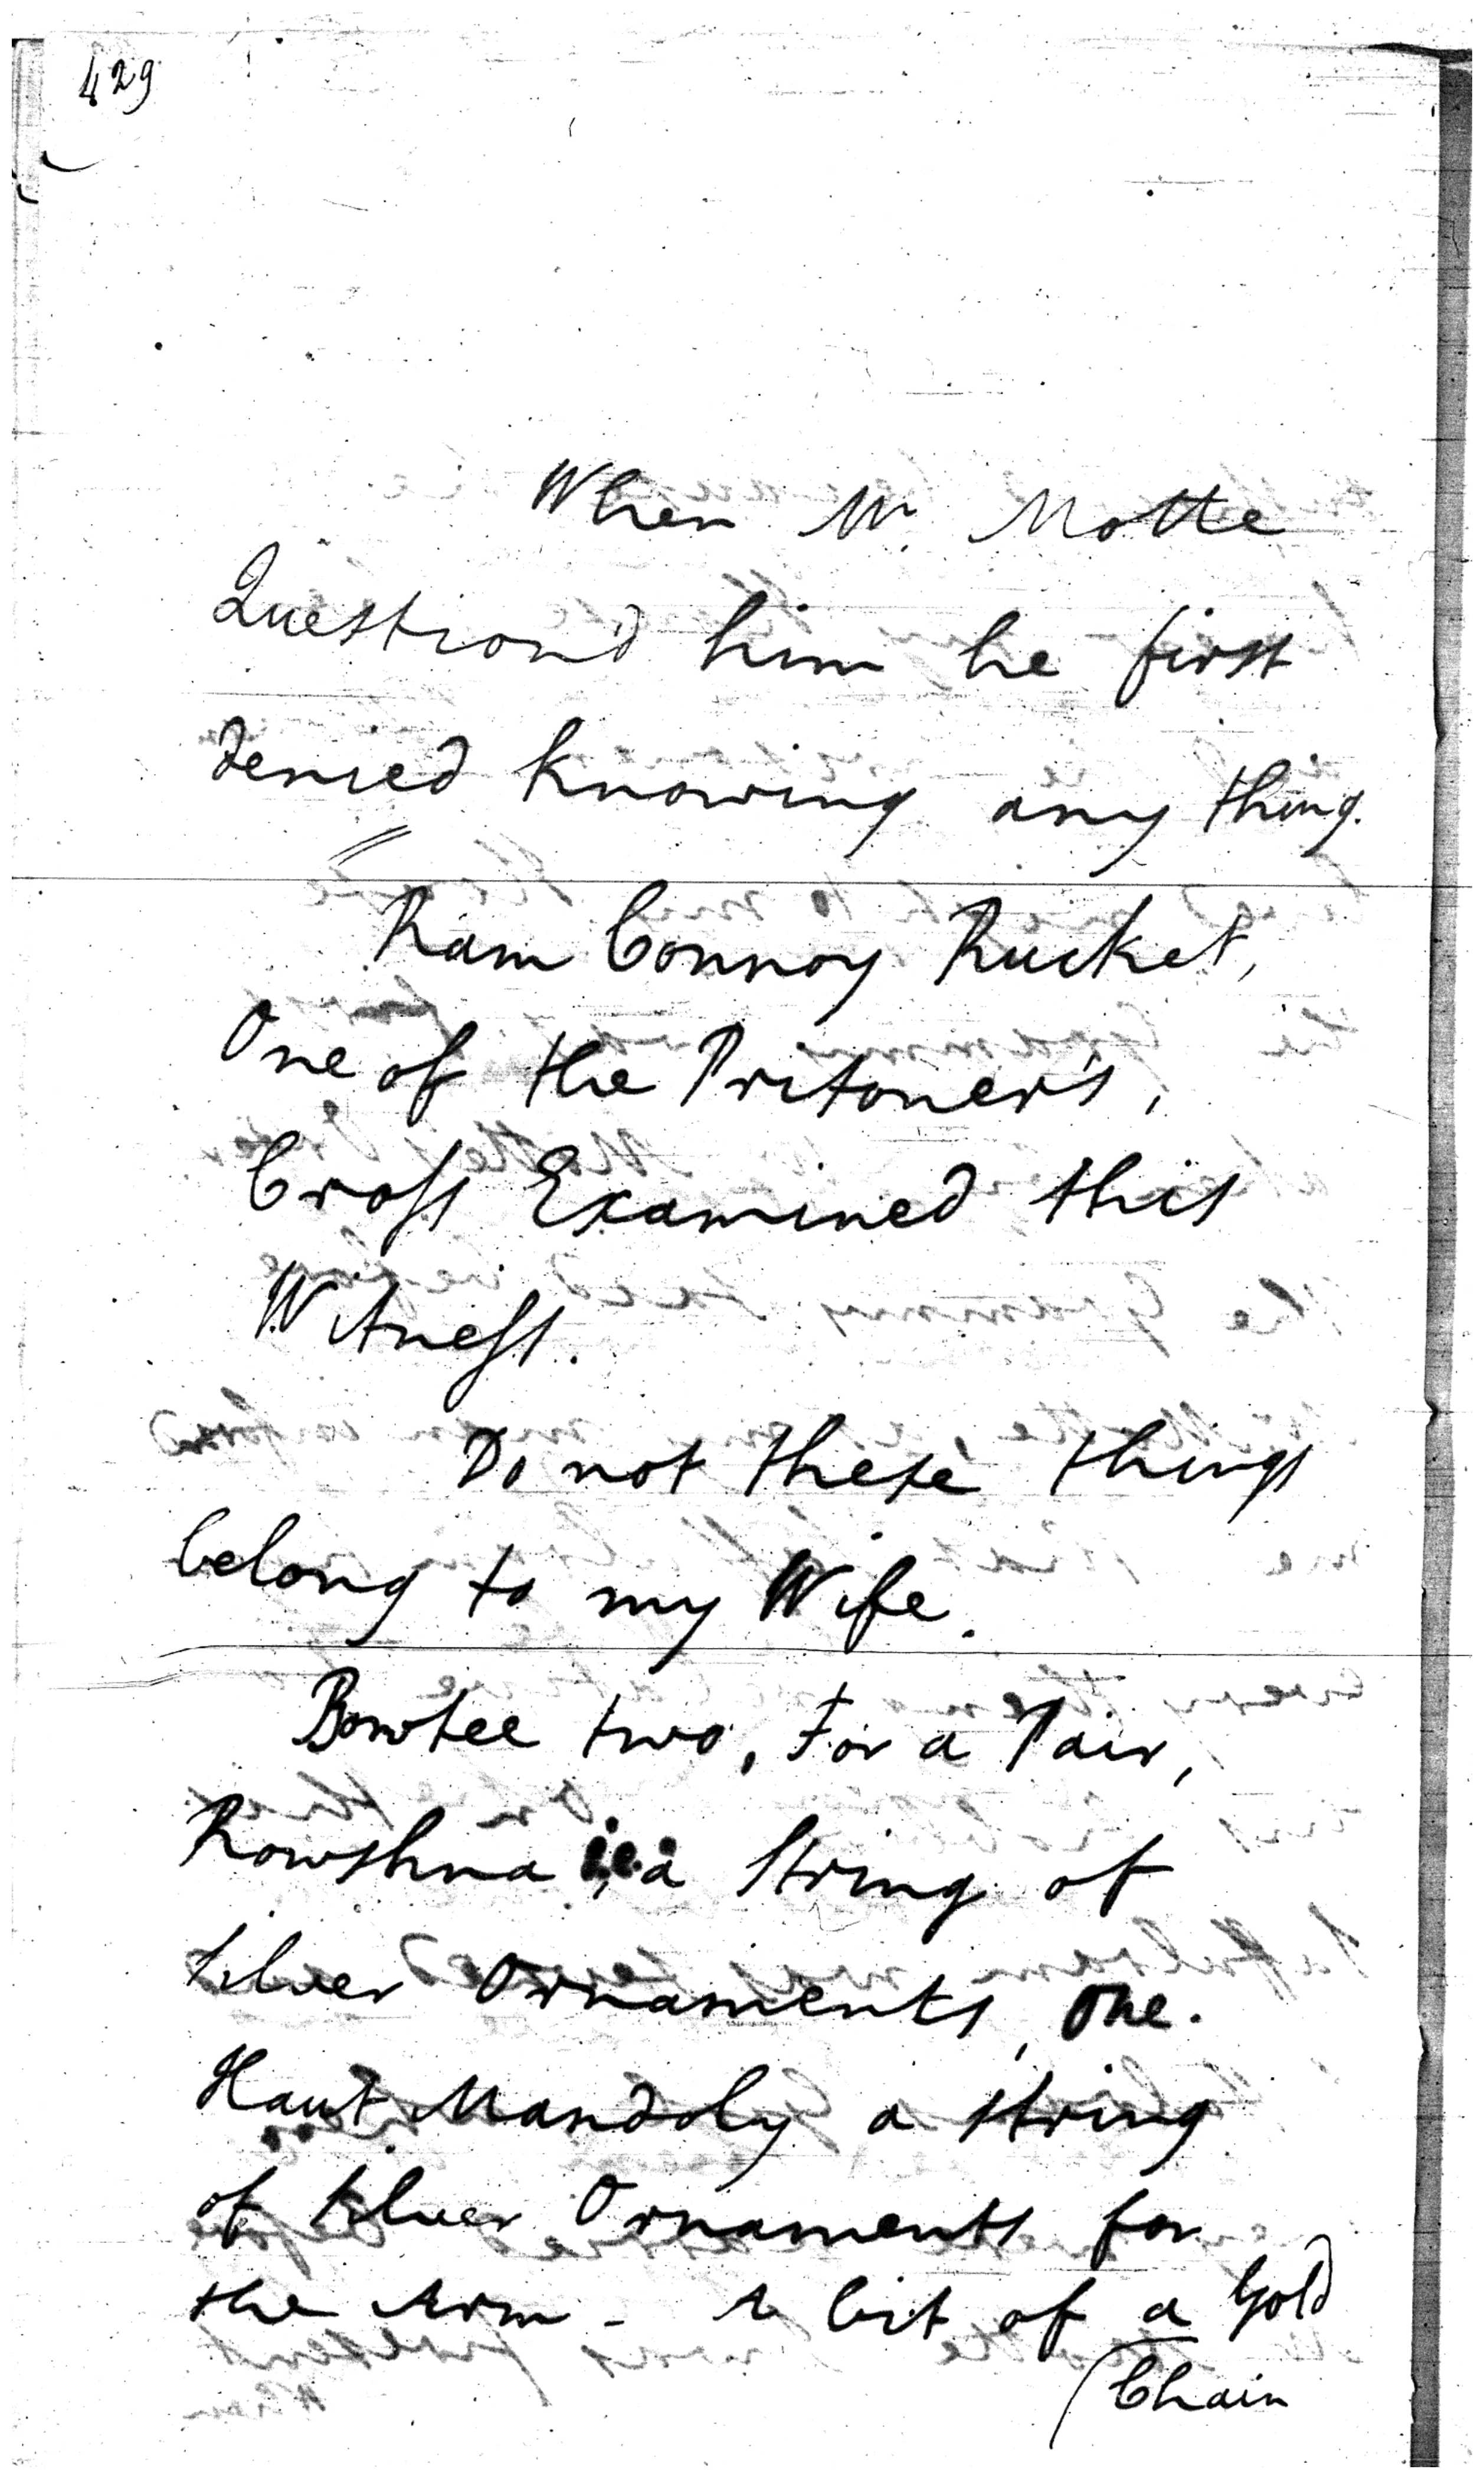 429
When Mr. Motte
Question'd him he first
denied knowing any thing.
Ram Connoy Rucket,
One of the Prisoner's,
Cross Examined this
Witness.
Do not these things
belong to my Wife.
Bowtee two, For a Pair,
Rowshna i.e. a String of
Silver Ornaments, One.
Haut Mandoly a string
of Silver Ornaments for
the Arm - A bit of a Gold
Chain